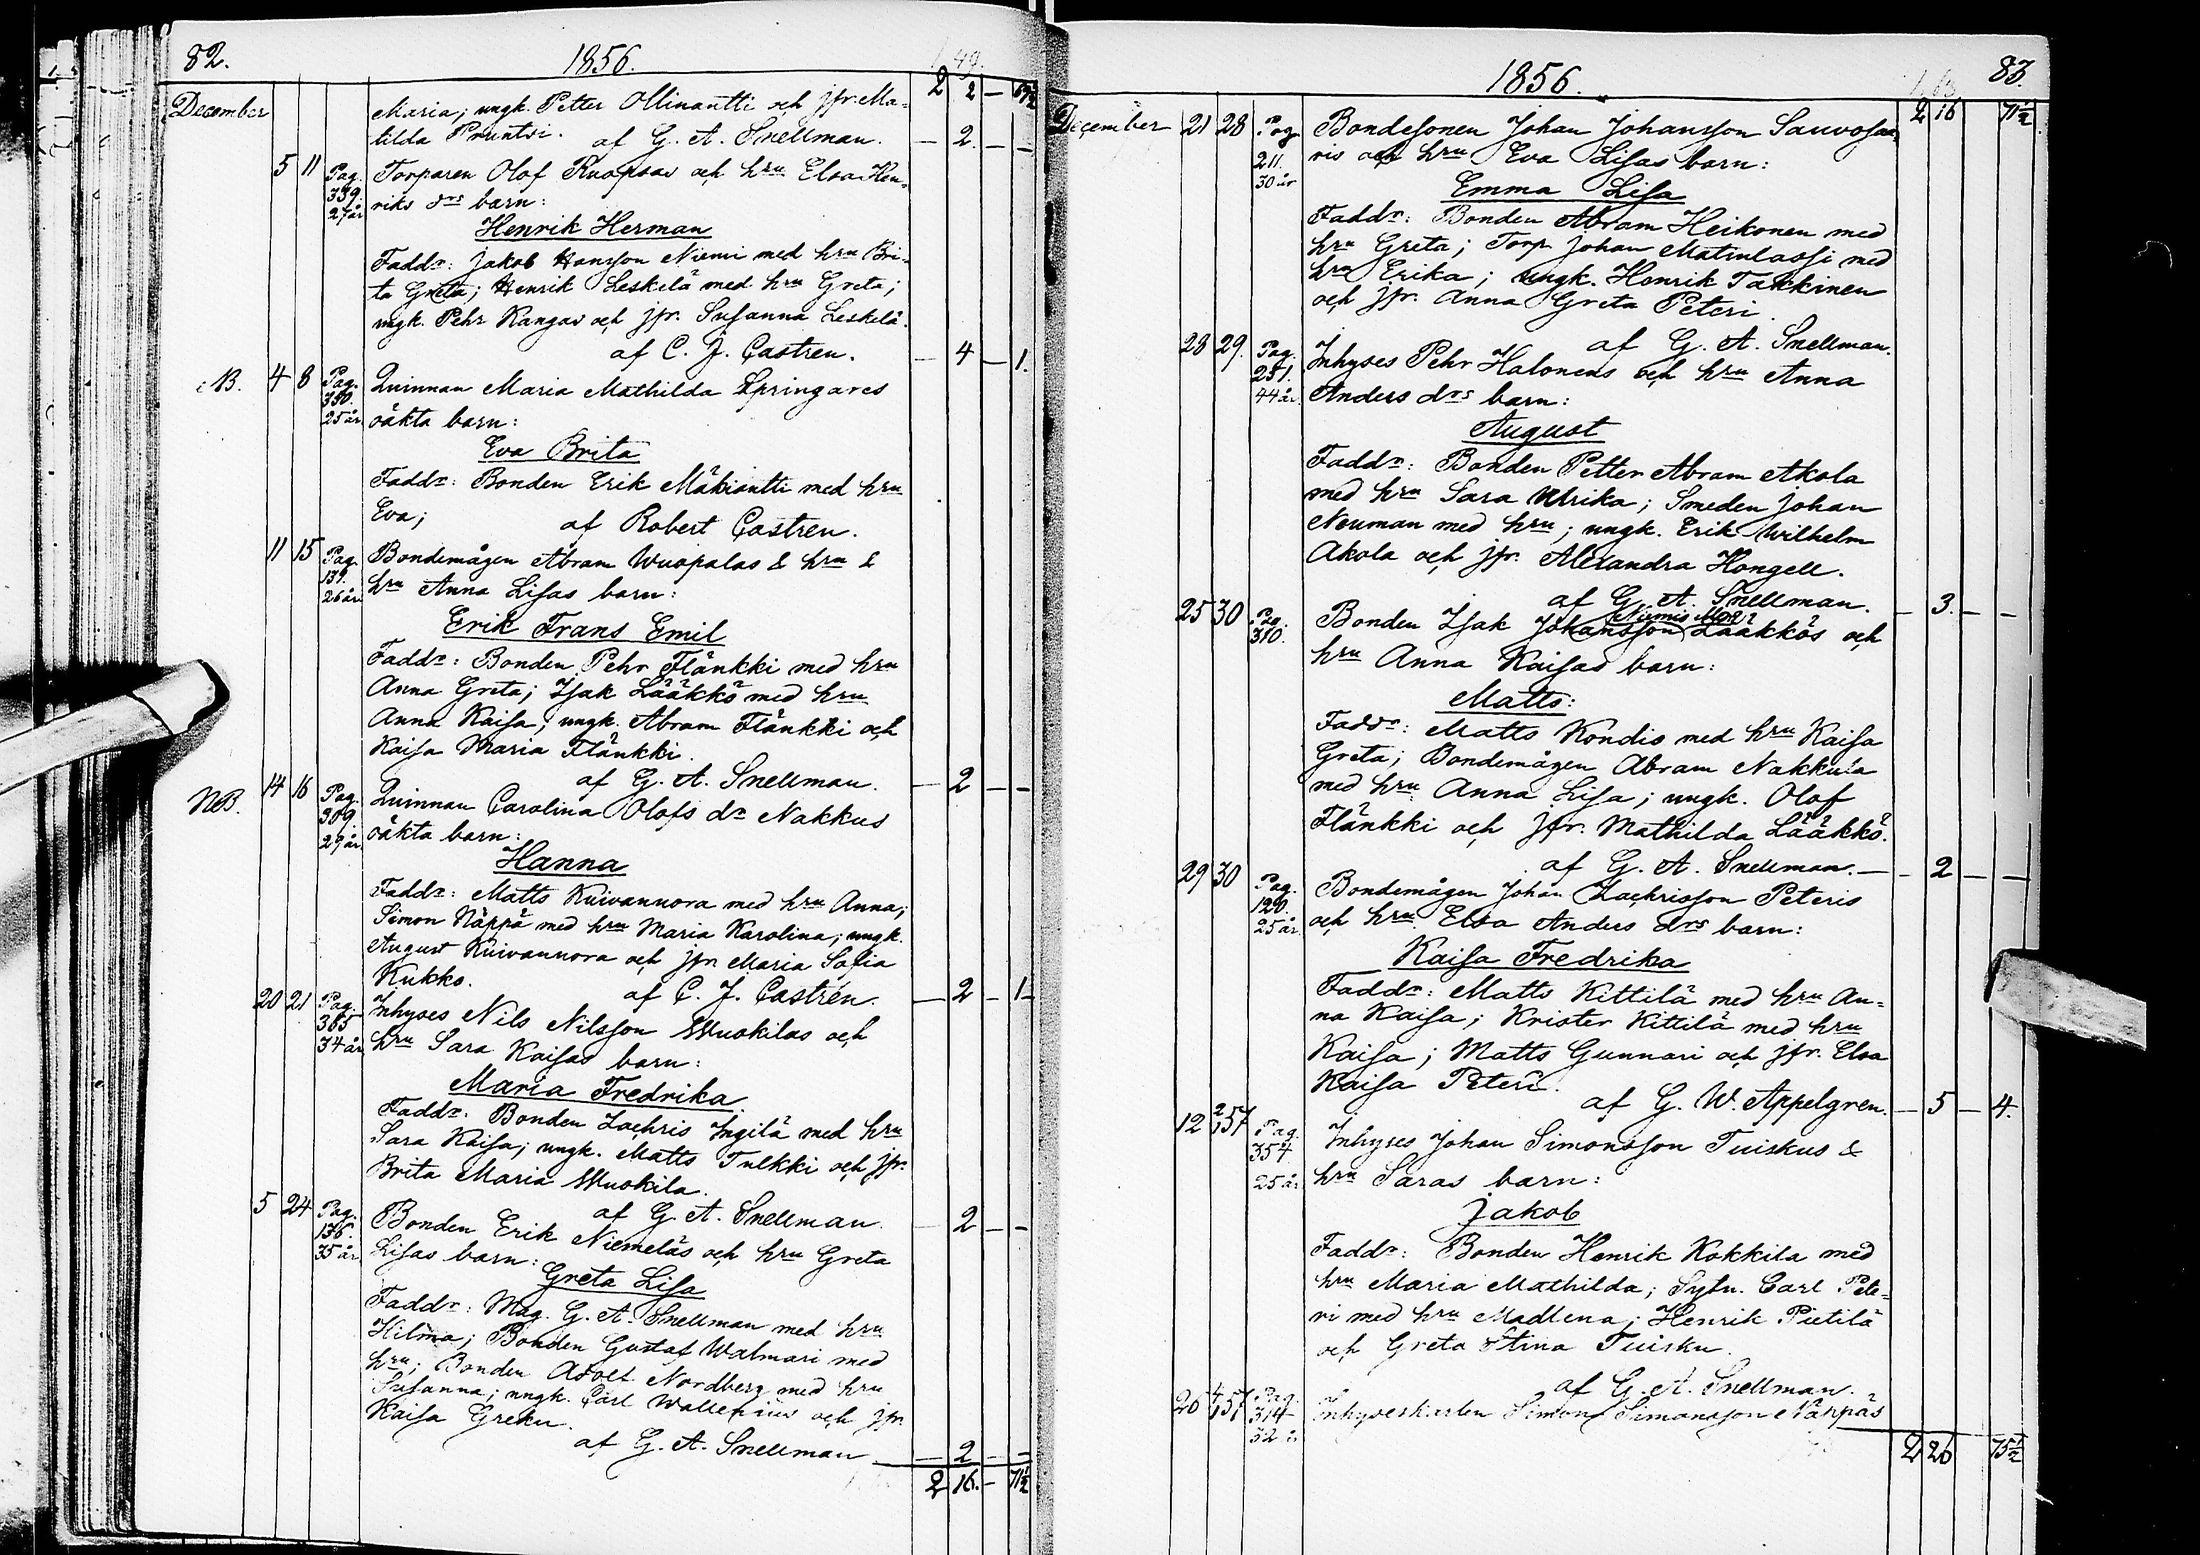 82.
1856.
2 2 — 69½
December
Maria; ungk. Petter Ollinantti och jfr. Ma-
tilda Pruntsi.
af G. A. Snellman. — 2. — —
5 11 Pag. 339. 27 år Torparen Olof Ruopsas och hru Elsa Hen-
riks drs barn:
Henrik Herman
Faddr: Jakob Hansson Niemi med hru Bri-
ta Greta; Henrik Leskelä med hru Greta;
ungk. Pehr Kangas och jfr. Susanna Leskelä.
af C. J. Castren. — 4 — 1.
NB. 4 8 Pag. 350. 25 år Quinnan Maria Mathilda Springares
oäkta barn:
Eva Brita
Faddr: Bonden Erik Mäkiantti med hru
Eva;
af Robert Castren.
11 15 Pag. 139. 26 år Bondemågen Abram Wuopalas & hru &
hru Anna Lisas barn:
Erik Frans Emil
Faddr: Bonden Pehr Flänkki med hru
Anna Greta; Isak Lääkkö med hru
Anna Kaisa; ungk. Abram Flänkki och
Kaisa Maria Flänkki.
af G. A. Snellman. — 2 — —
NB. 14 16 Pag. 309. 29 år Quinnan Carolina Olofs dr Nakkus
oäkta barn:
Hanna
Faddr: Matts Kuivannora med hru Anna;
Simon Näppä med hru Maria Karolina; ungk.
August Kuivannora och jfr Maria Sofia
Kukko.
af C. J. Castrén. — 2 — 1 —
20 21 Pag. 385 34 år Inhyses Nils Nilsson Wuokilas och
hru Sara Kaisas barn:
Maria Fredrika.
Faddr. Bonden Zachris Ingilä med hru
Sara Kaisa; ungk. Matts Tulkki och jfr.
Brita Maria Wuokila.
af G. A. Snellman — 2 — —
5 24 Pag. 136. 35 år Bonden Erik Niemeläs och hru Greta
Lisas barn:
Greta Lisa
Faddr: Mag. G. A. Snellman med hru
Hilma; Bonden Gustaf Walmari med
hru; Bonden Adolt Nordberg med hru
Susanna; ungk. Carl Wallenius och jfr.
Kaisa Greku.
af G. A. Snellman — 2 — —
2 16. — 71½
1856.
83.
2 16 71½
December 21 28 Pag 211. 30 år Bondesonen Johan Johansson Sauvosaa-
ris och hru Eva Lisas barn:
Emma Lisa
Faddr: Bonden Abram Heikonen med
hru Greta; Torp. Johan Matinlassi med
hru Erika; ungk. Henrik Takkinen
och jfr. Anna Greta Peteri.
af G. A. Snellman.
28 29. Pag. 251. 44 år. Inhyses Pehr Halonens och hru Anna
Anders drs barn:
August
Faddr: Bonden Petter Abram Akola
med hru Sara Ulrika; Smeden Johan
Neuman med hru; ungk. Erik Wilhelm
Akola och jfr. Alexandra Hongell.
af G. A. Snellman. — 3. — —
25 30 Pag. 310. Bonden Isak Johansson Lääkkös och
hru Anna Kaisas barn:
Matts:
Faddr: Matts Kondis med hru Kaisa
Greta; Bondemågen Abram Nakkula
med hru Anna Lisa; ungk. Olof
Flänkki och jfr. Mathilda Lääkkö.
af G. A. Snellman. — 2 — —
29 30 Pag. 120. 25 år. Bondemågen Johan Zachrisson Peteris
och hru Elsa Anders drs barn:
Kaisa Fredrika
Faddr: Matts Kittilä med hru An-
na Kaisa; Krister Kittilä med hru
Kaisa; Matts Gunnari och jfr. Elsa
Kaisa Peteri.
af G. W. Appelgren. — 5 — 4.
12 2/1 57 Pag. 354 25 år Inhyses Johan Simonsson Tuiskus &
hru Saras barn:
Jakob
Faddr: Bonden Henrik Kokkila med
hru Maria Mathilda; Sytn. Carl Pete-
ri med hru Madlena; Henrik Pietilä
och Greta Stina Tuisku.
af G. A. Snellman.
26 4/1 57 Pag. 314 32 år Inhyseskarlen Simon Simonsson Näppäs
2 26 75½